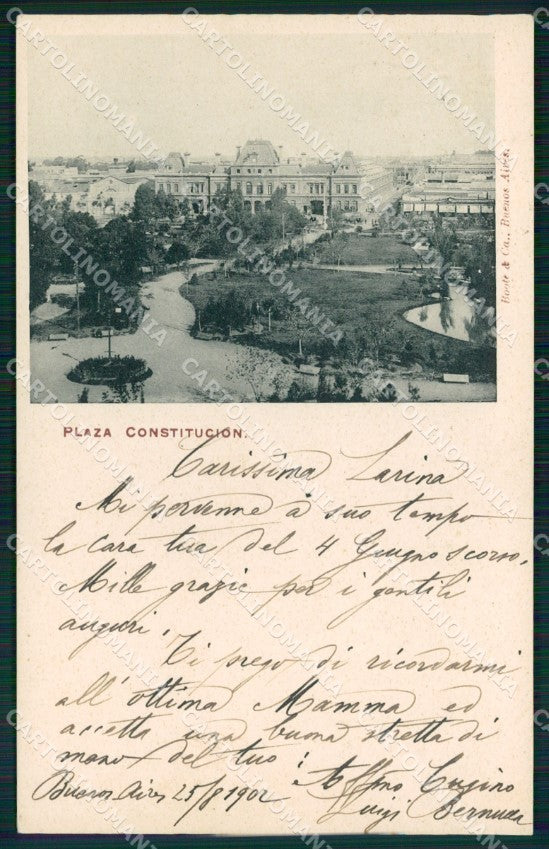 Boote & Ca., Buenos Aires.
PLAZA CONSTITUCIÓN.
Carissima Larina
Mi pervenne a suo tempo
la cara tua del 4 Giugno scorso.
Mille grazie per i gentili
auguri.
Ti prego di ricordarmi
all'ottima Mamma ed
accetta una buona stretta di
mano del tuo
Affmo Cugino
Luigi
Buenos Aires 25/8 1902
CARTOLINOMANIA